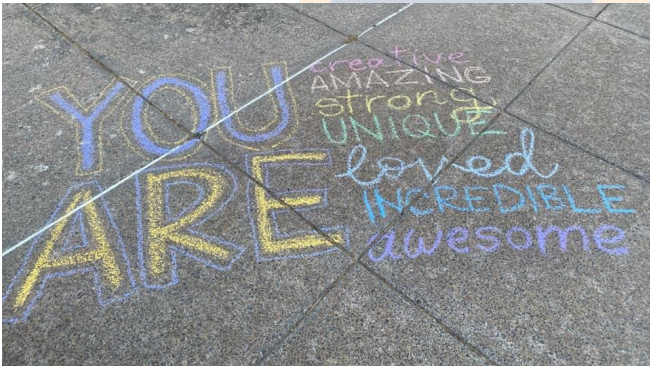 YOU
ARE
creative
AMAZING
strong
UNIQUE
loved
INCREDIBLE
awesome